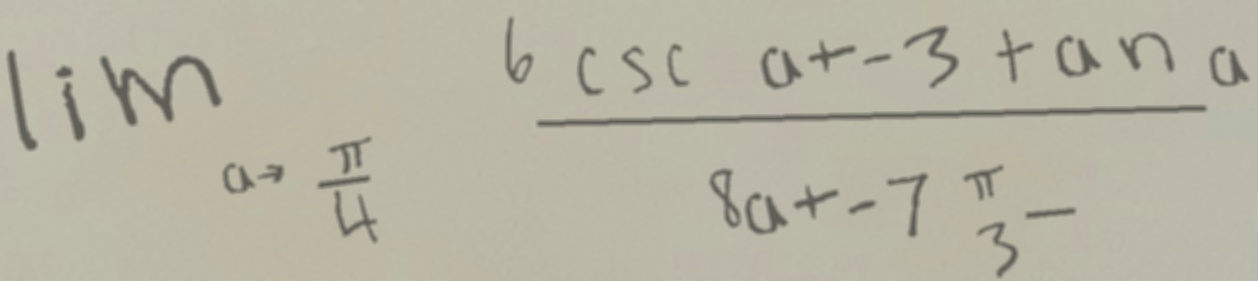 lim a→ π/4 (6 csc a + -3 tan a) / (8a + -7 π/3)